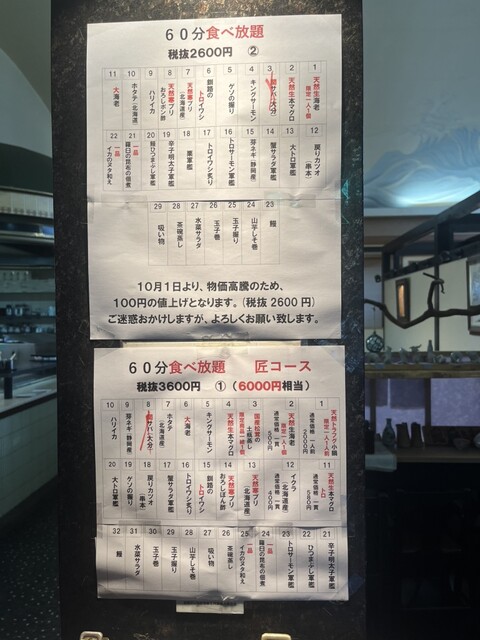 60分食べ放題
税抜2600円 ②
1 天然生海老 限定一人一個
2 天然生本マグロ
3 サバ(大分)
4 キングサーモン
5 ゲソの握り
6 釧路の トロイワシ
7 天然寒ブリ (北海道産)
8 天然寒ブリ おろしポン酢
9 ハリイカ
10 ホタテ(北海道)
11 大海老
12 戻りカツオ (串本)
13 大トロ軍艦
14 蟹サラダ軍艦
15 芽ネギ(静岡産)
16 トロサーモン軍艦
17 トロイワシ炙り
18 栗軍艦
19 辛子明太子軍艦
20 鰻ひつまぶし軍艦
21 一品 羅臼の昆布の佃煮
22 一品 イカのヌタ和え
23 鰻
24 山芋しそ巻
25 玉子握り
26 玉子巻
27 水菜サラダ
28 茶碗蒸し
29 吸い物
10月1日より、物価高騰のため、
100円の値上げとなります。(税抜 2600 円)
ご迷惑おかけしますが、よろしくお願い致します。
60分食べ放題 匠コース
税抜3600円 ①(6000円相当)
1 天然トラフグ小鍋 限定一人一個 通常価格 一人前 2000円
2 天然生海老 限定一人一個 通常価格 一貫 500円
3 国産松茸の 土瓶蒸し 限定商品一組一個
4 天然生本マグロ
5 キングサーモン
6 大海老
7 ホタテ (北海道)
8 サバ(大分)
9 芽ネギ(静岡産)
10 ハリイカ
11 天然生本マグロ トロ 通常価格 一貫 500円
12 イクラ (北海道産) 通常価格 一貫 400円
13 天然寒ブリ (北海道産)
14 天然寒ブリ おろしぽん酢
15 釧路の トロイワシ
16 トロイワシ炙り
17 蟹サラダ軍艦
18 戻りカツオ (串本)
19 ゲソの握り
20 大トロ軍艦
21 辛子明太子軍艦
22 ひつまぶし軍艦
23 トロサーモン軍艦
24 一品 羅臼の昆布の佃煮
25 一品 イカのヌタ和え
26 茶碗蒸し
27 吸い物
28 山芋しそ巻
29 玉子握り
30 玉子巻
31 水菜サラダ
32 鰻